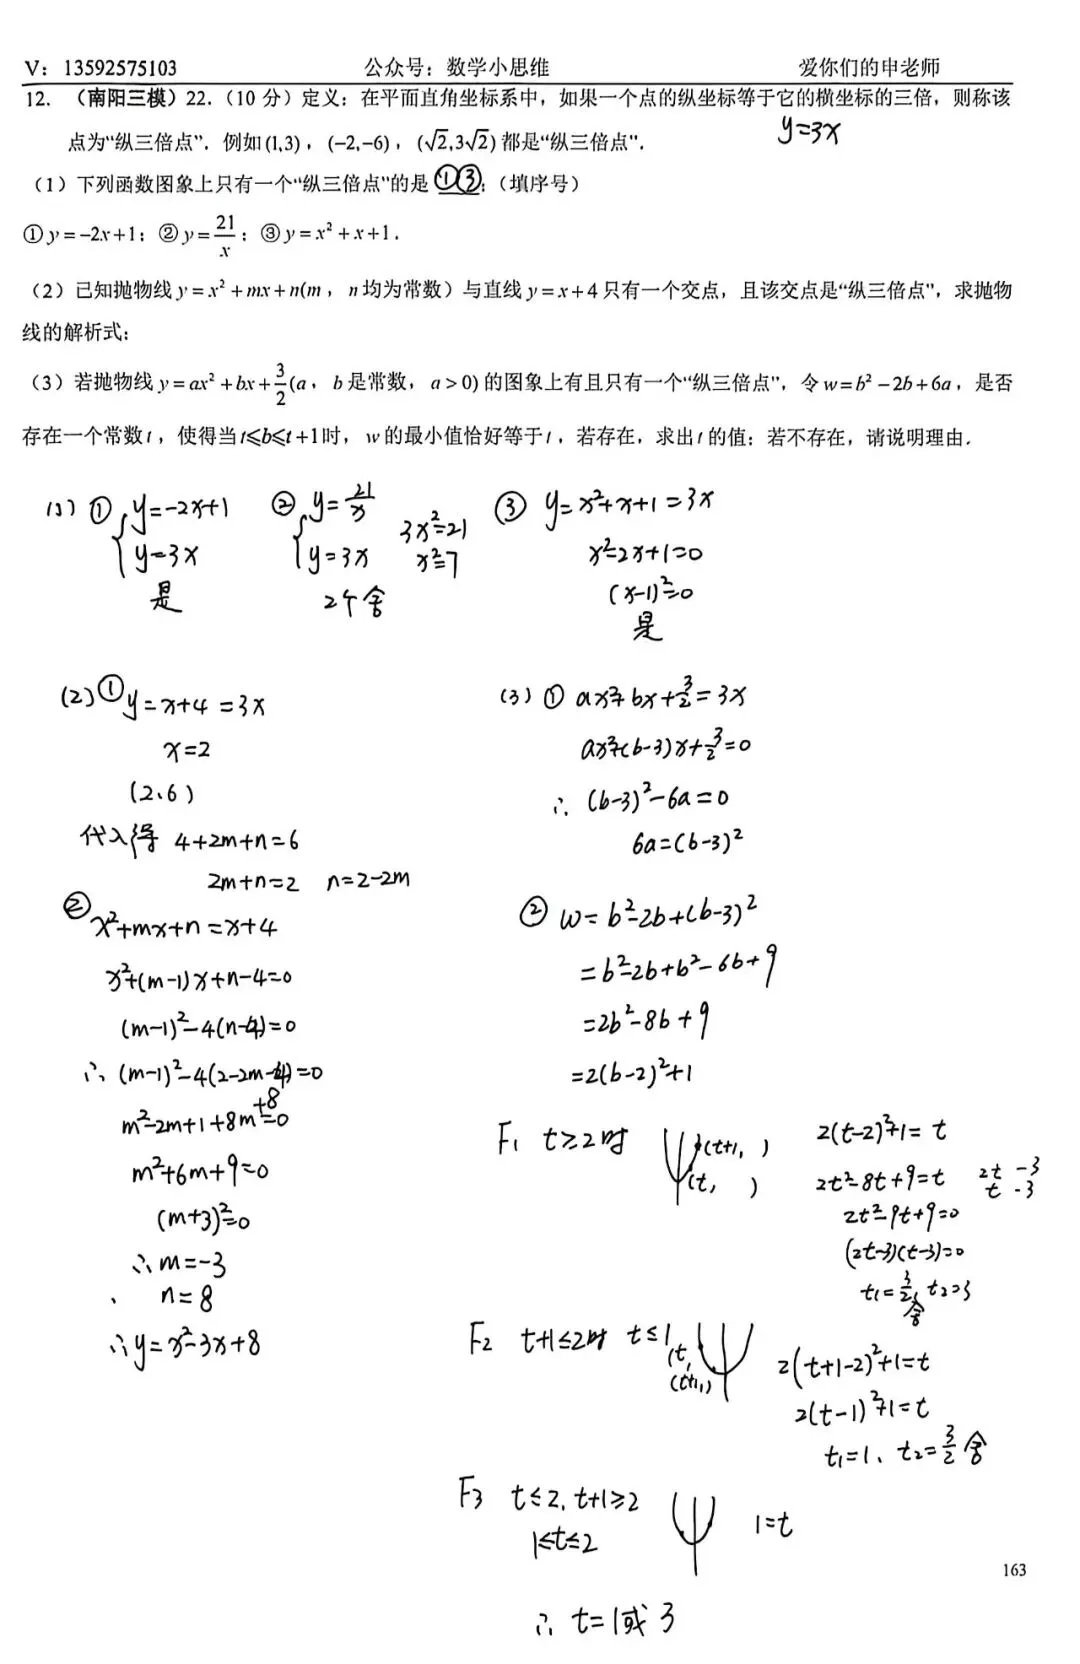 V：13592575103 公众号：数学小思维 爱你们的申老师
12. （南阳三模）22.（10 分）定义：在平面直角坐标系中，如果一个点的纵坐标等于它的横坐标的三倍，则称该
点为“纵三倍点”．例如(1,3)，(-2,-6)，(√2,3√2)都是“纵三倍点”．
y=3x
（1）下列函数图象上只有一个“纵三倍点”的是 ①③；（填序号）
①y=-2x+1；②y=21/x；③y=x²+x+1．
（2）已知抛物线y=x²+mx+n(m，n均为常数）与直线y=x+4只有一个交点，且该交点是“纵三倍点”，求抛物
线的解析式；
（3）若抛物线y=ax²+bx+3/2(a，b是常数，a>0)的图象上有且只有一个“纵三倍点”，令w=b²-2b+6a，是否
存在一个常数t，使得当t≤b≤t+1时，w的最小值恰好等于t，若存在，求出t的值；若不存在，请说明理由．
(1) ① { y=-2x+1
y=3x
是
② { y=21/x
y=3x
3x²=21
x²=7
2个 舍
③ y=x²+x+1=3x
x²-2x+1=0
(x-1)²=0
是
(2) ① y=x+4=3x
x=2
(2、6)
代入得 4+2m+n=6
2m+n=2 n=2-2m
② x²+mx+n=x+4
x²+(m-1)x+n-4=0
(m-1)²-4(n-4)=0
∴ (m-1)²-4(2-2m-4)=0
m²-2m+1+8m+8=0
m²+6m+9=0
(m+3)²=0
∴m=-3
n=8
∴y=x²-3x+8
(3) ① ax²+bx+3/2=3x
ax²+(b-3)x+3/2=0
∴ (b-3)²-6a=0
6a=(b-3)²
② w=b²-2b+(b-3)²
=b²-2b+b²-6b+9
=2b²-8b+9
=2(b-2)²+1
F1 t≥2时 (t+1, )
(t, )
2(t-2)²+1=t
2t²-8t+9=t 2t -3
t -3
2t²-9t+9=0
(2t-3)(t-3)=0
t₁=3/2, t₂=3
舍
F2 t+1≤2时 t≤1 (t,
(t+1,)
2(t+1-2)²+1=t
2(t-1)²+1=t
t₁=1、t₂=3/2 舍
F3 t≤2, t+1≥2
1≤t≤2
1=t
∴ t=1或3
163